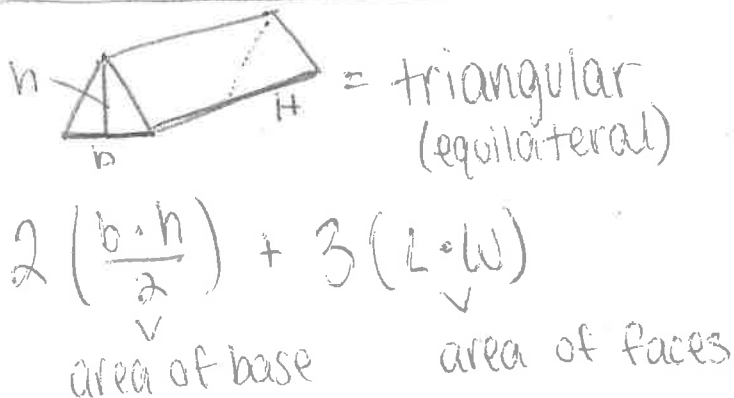 h
= triangular
H
(equilateral)
b
2 (b·h/2) + 3 (L·W)
area of base
area of faces